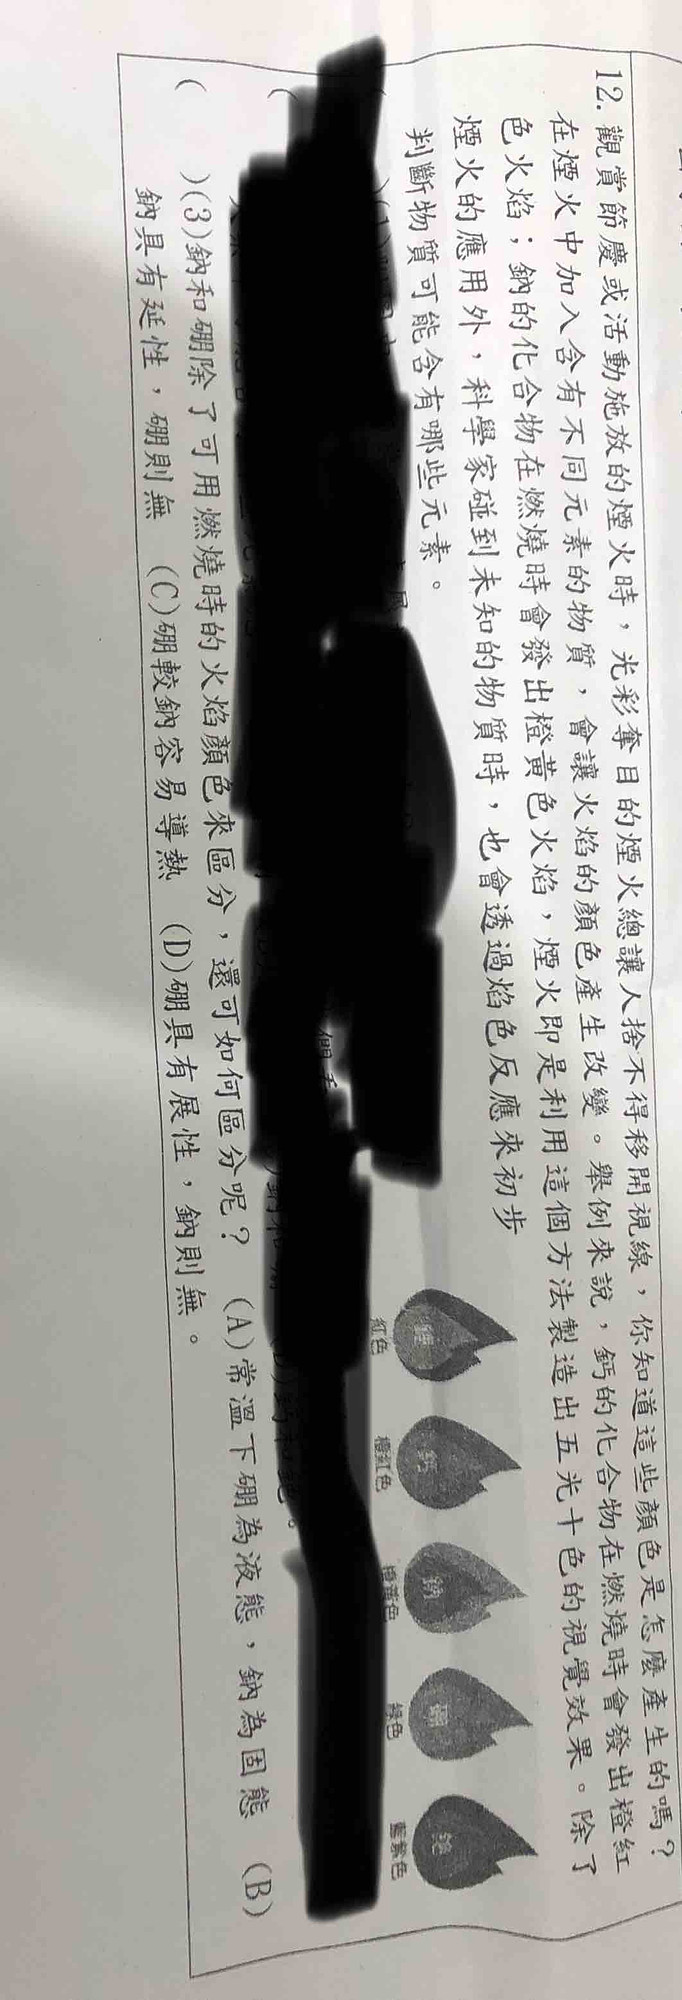 12. 觀賞節慶或活動施放的煙火時，光彩奪目的煙火總讓人捨不得移開視線，你知道這些顏色是怎麼產生的嗎？
在煙火中加入含有不同元素的物質，會讓火焰的顏色產生改變。舉例來說，鈣的化合物在燃燒時會發出橙紅
色火焰；鈉的化合物在燃燒時會發出橙黃色火焰，煙火即是利用這個方法製造出五光十色的視覺效果。除了
煙火的應用外，科學家碰到未知的物質時，也會透過焰色反應來初步
判斷物質可能含有哪些元素。
鈣
鈉
硼
紅色
橙紅色
橙黃色
綠色
藍紫色
(　　)(3)鈉和硼除了可用燃燒時的火焰顏色來區分，還可如何區分呢？　(A)常溫下硼為液態，鈉為固態　(B)
鈉具有延性，硼則無　(C)硼較鈉容易導熱　(D)硼具有展性，鈉則無。